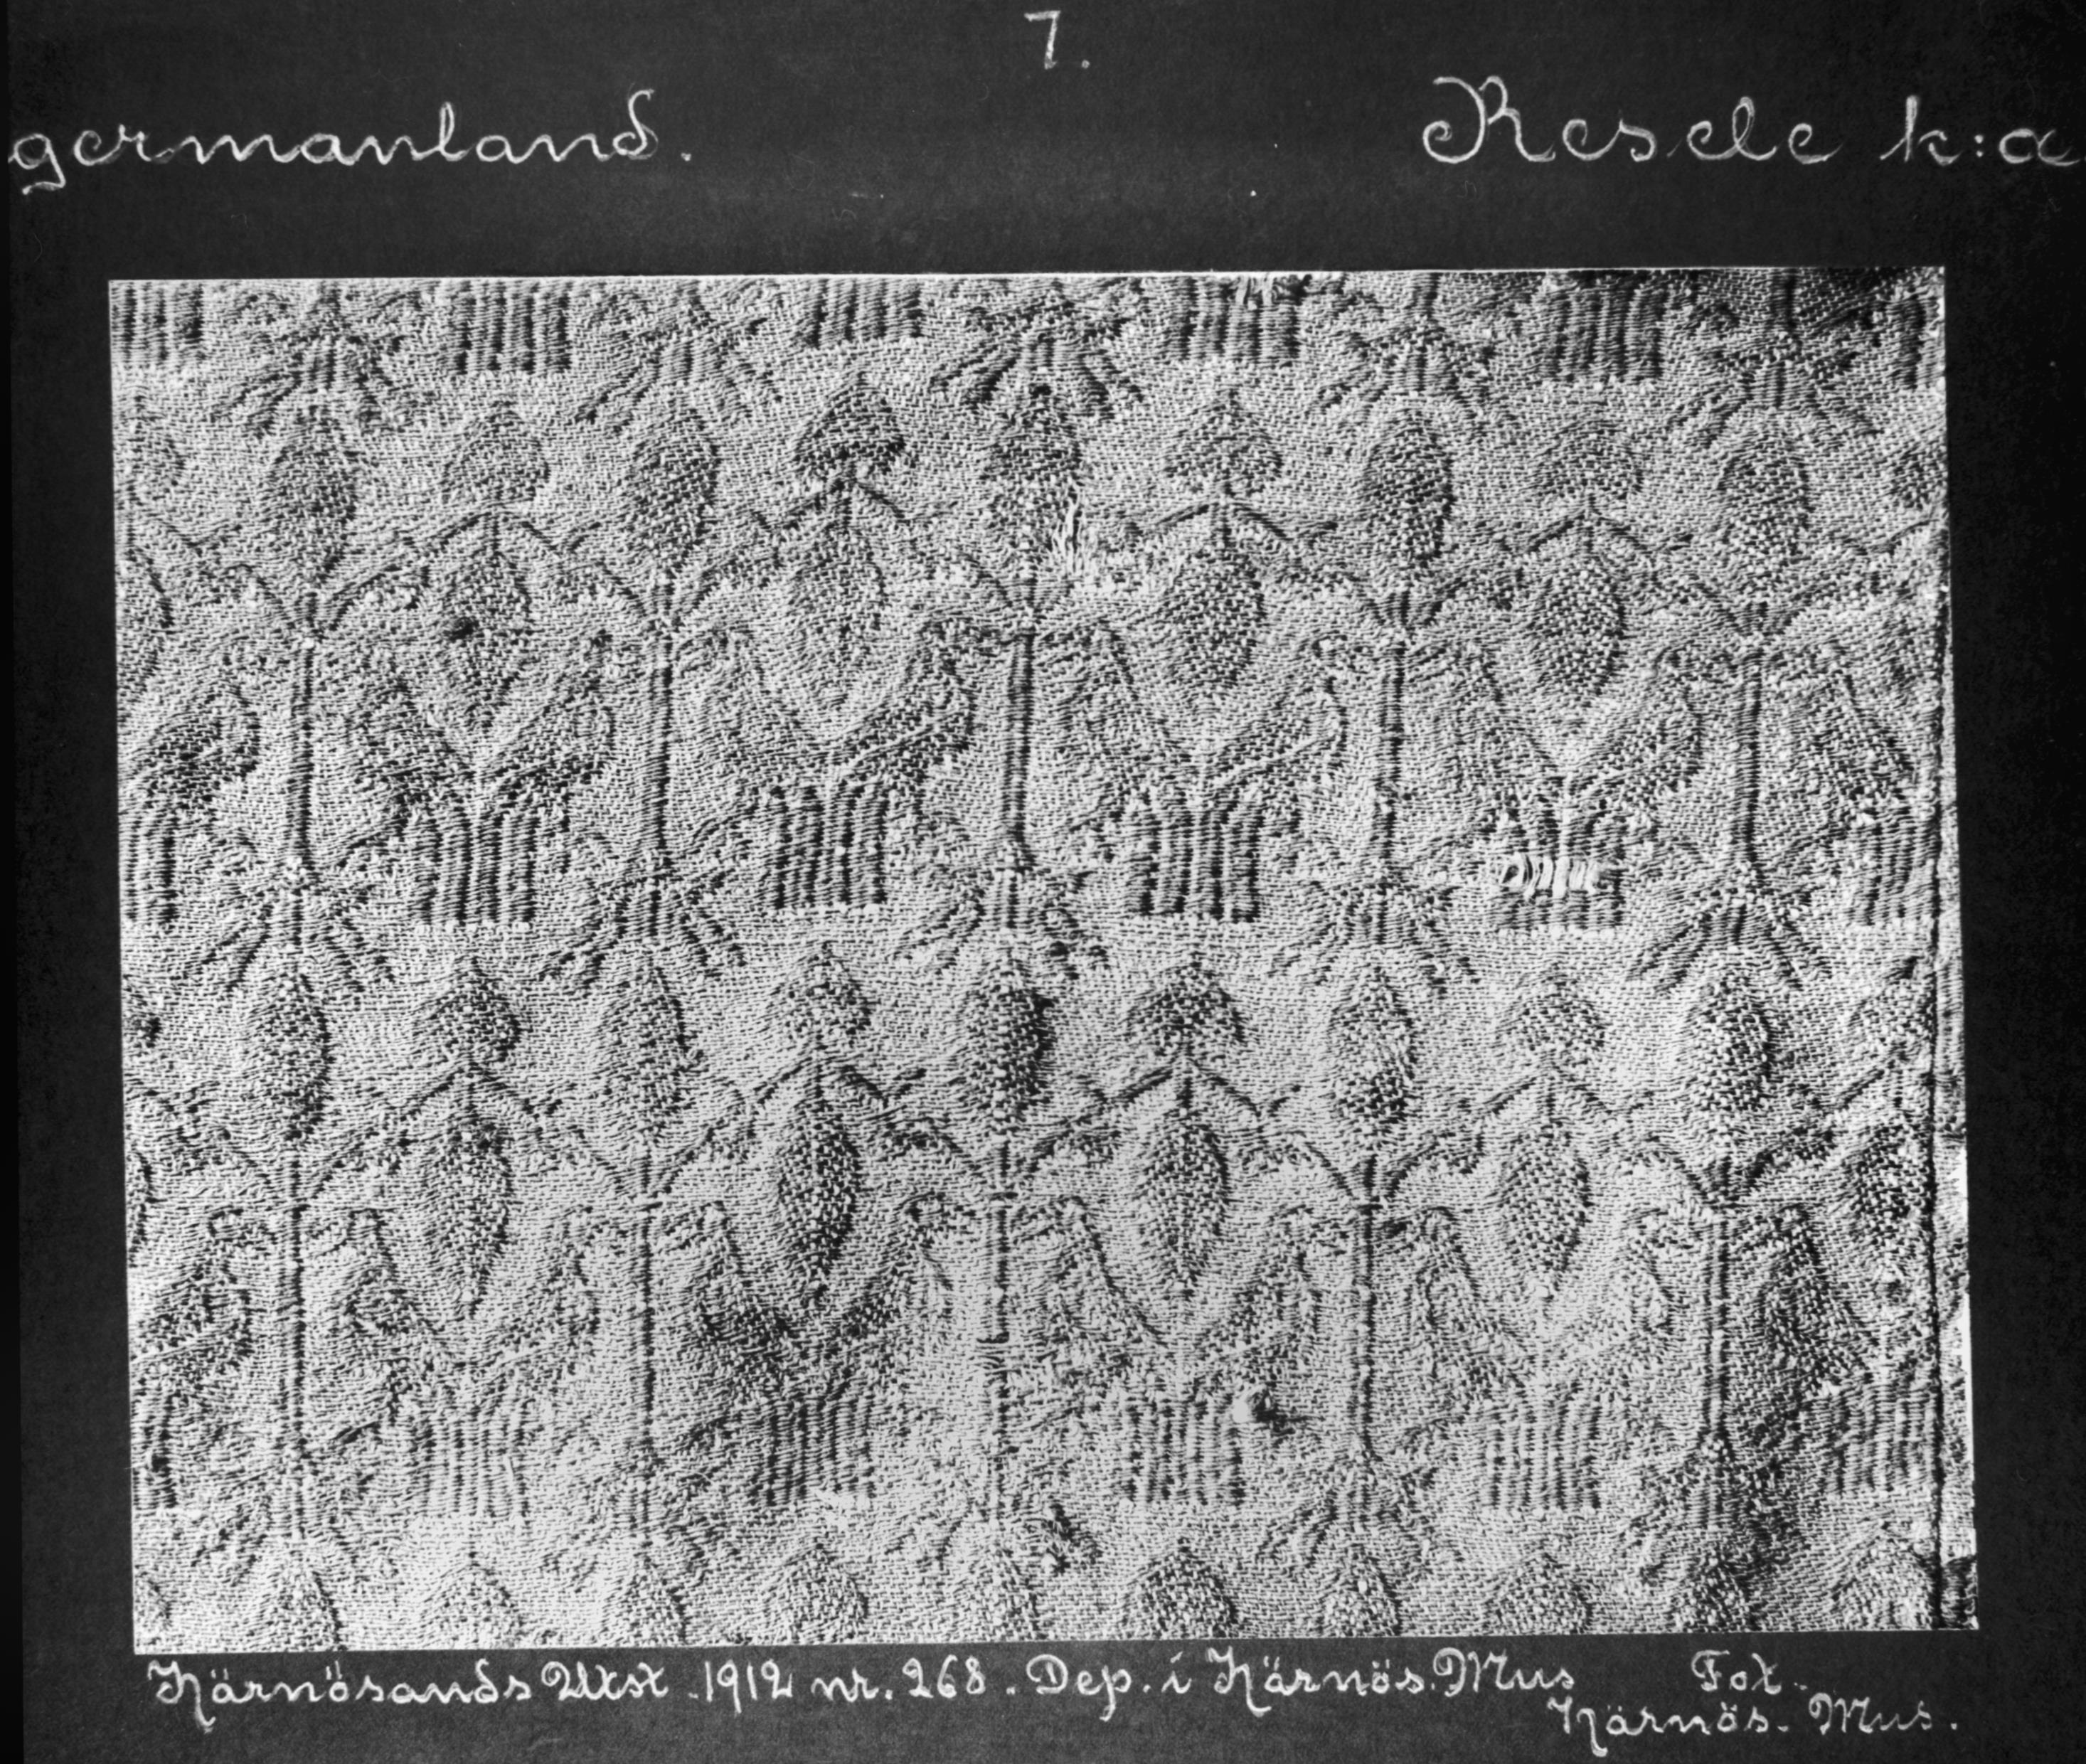 7.
germanland. Resele k:a
Härnösands Utst. 1912 nr. 268. Dep. i Härnös. Mus Fot.
Härnös. Mus.